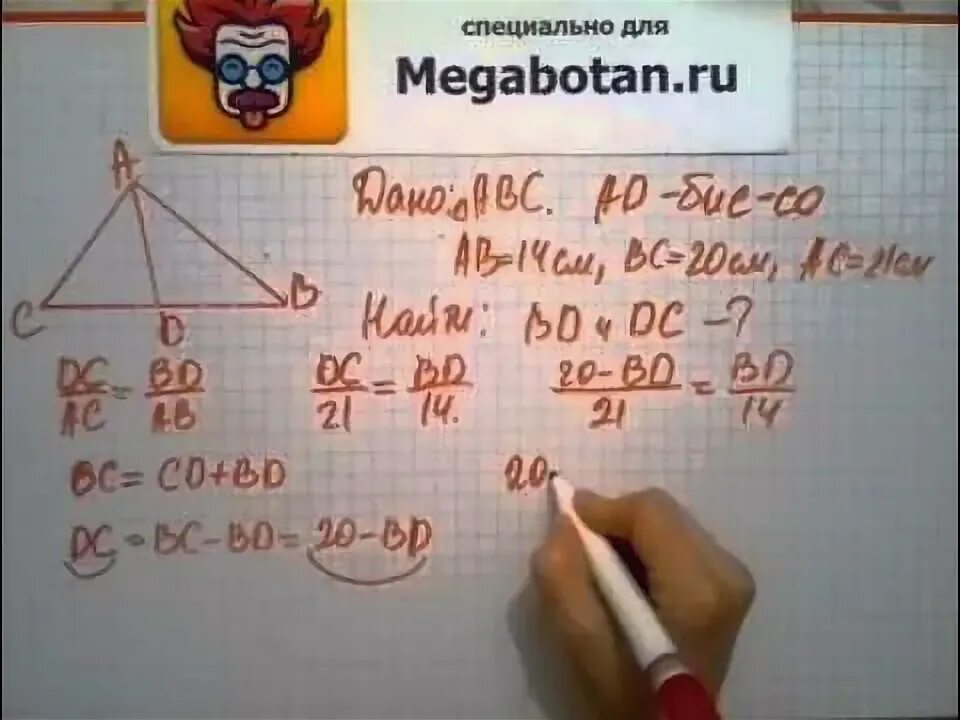 специально для
Megabotan.ru
Дано: △ABC. AD-бис-са
AB=14см, BC=20см, AC=21см
Найти: BD и DC -?
A
C
D
B
DC/AC = BD/AB
DC/21 = BD/14.
20-BD/21 = BD/14
BC = CD+BD
20-
DC = BC-BD = 20-BD